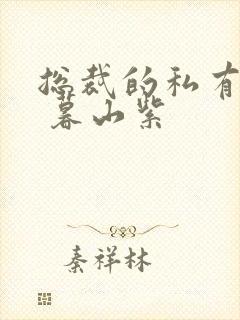 总裁的私有
暮山紫
秦祥林